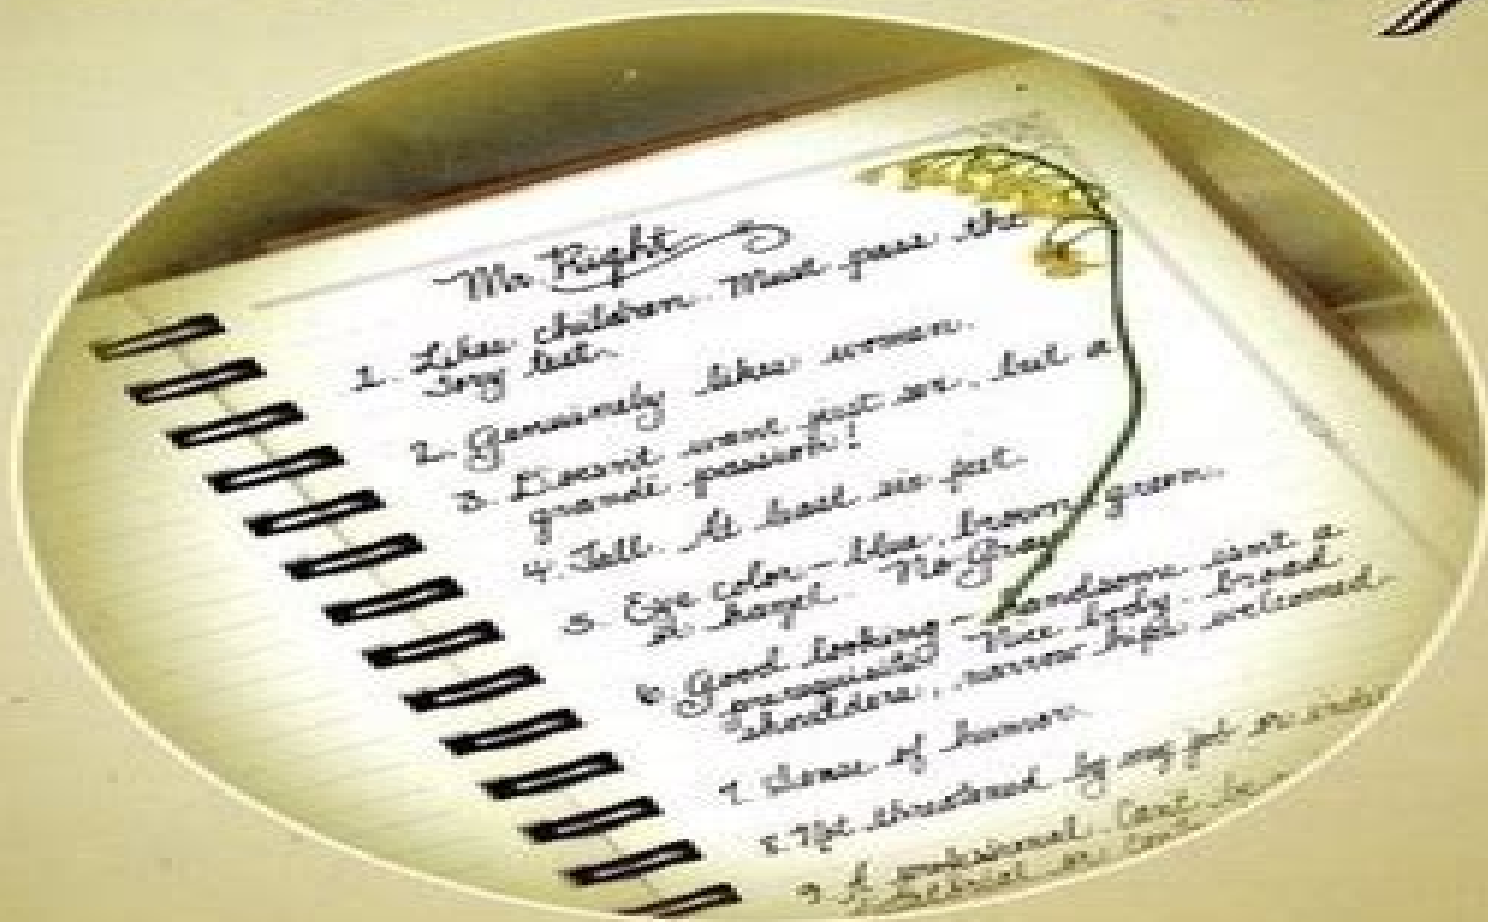 Mr. Right
1. Likes children. Must pass the
Tory test.
2. Genuinely likes women.
3. Doesn't want just sex, but a
grande passion!
4. Tall. At least six feet.
5. Eye color - blue, brown, green,
or hazel. No Gray
6. Good looking - handsome isn't a
prerequisite. Nice body - broad
shoulders, narrow hips welcomed.
7. Sense of humor.
8. Not threatened by my job or
9. A professional. Can't be